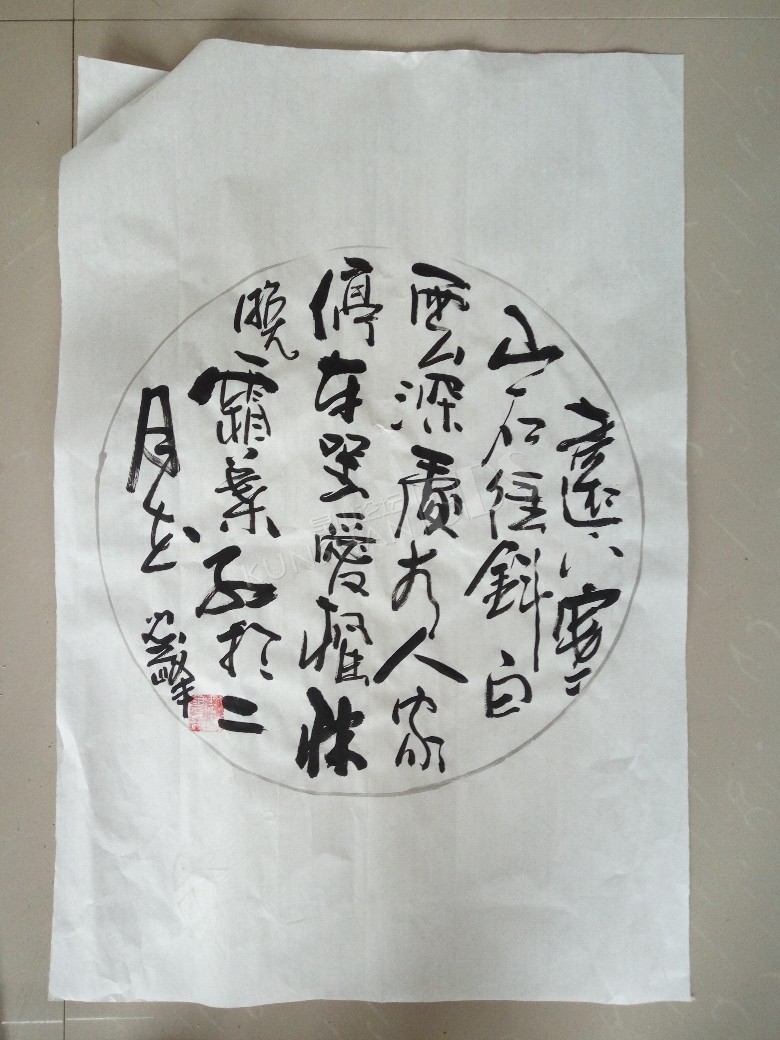 遠上寒
山石徑斜白
雲深處有人家
停车坐愛楓林
晚霜葉红於二
月花
峰